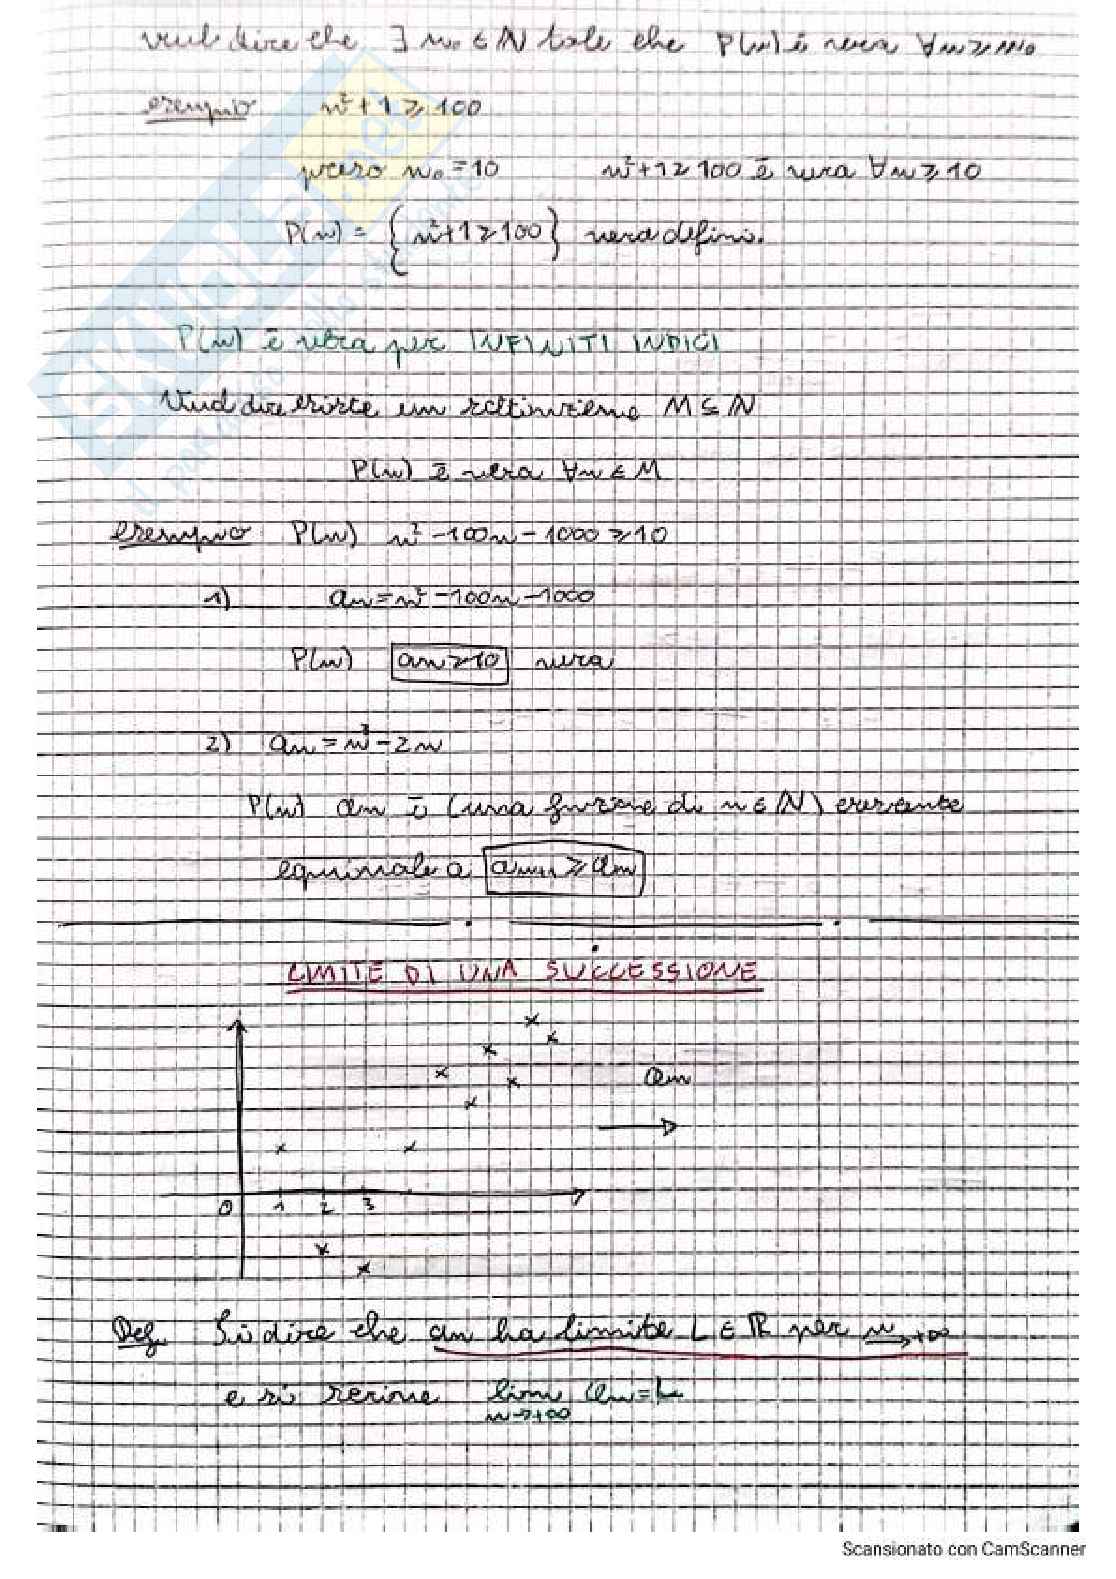 vuol dire che ∃ n₀ ∈ ℕ tale che P(n) è vera ∀n ≥ n₀
esempio n² + 1 ≥ 100
preso n₀ = 10 n² + 1 ≥ 100 è vera ∀n ≥ 10
P(n) = { n² + 1 ≥ 100 } vera defini.
P(n) è vera per INFINITI INDICI
Vuol dire esiste un sottinsieme M ⊆ ℕ
P(n) è vera ∀n ∈ M
esempio P(n) n² - 100n - 1000 ≥ 10
1) an = n² - 100n - 1000
P(n) an ≥ 10 vera
2) an = n³ - 2n
P(n) an è (una funzione di n ∈ ℕ) crescente
equivale a an+1 ≥ an
LIMITE DI UNA SUCCESSIONE
an
0 1 2 3
Def. Si dire che an ha limite L ∈ ℝ per n→+∞
e si scrive lim an = L
n→+∞
SKUOLA.net
Scansionato con CamScanner